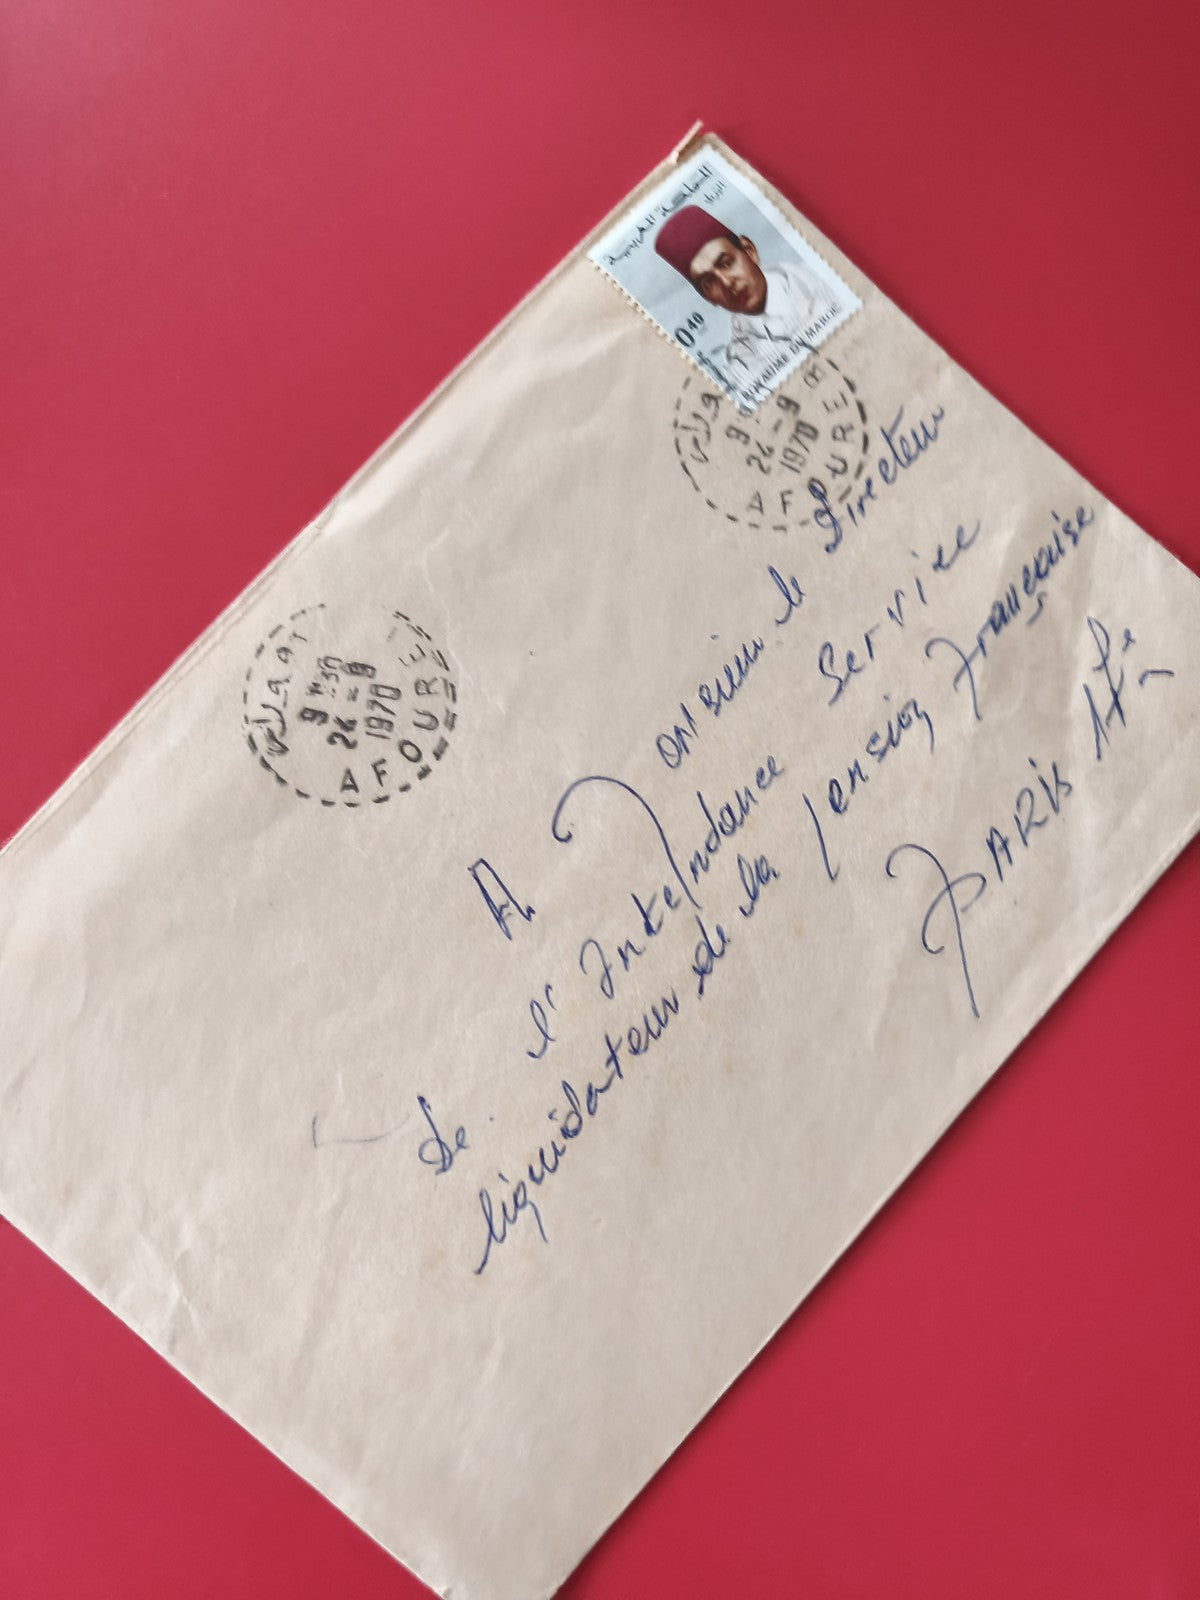 المملكة المغربية
البريد
0,40
ROYAUME DU MAROC
9H
26-9
1970
AFOURER
9H30
26-9
1970
AFOURER
A Monsieur le Directeur
de l'Intendance Service
liquidateur de la Pension Françaaise
PARIS 17e